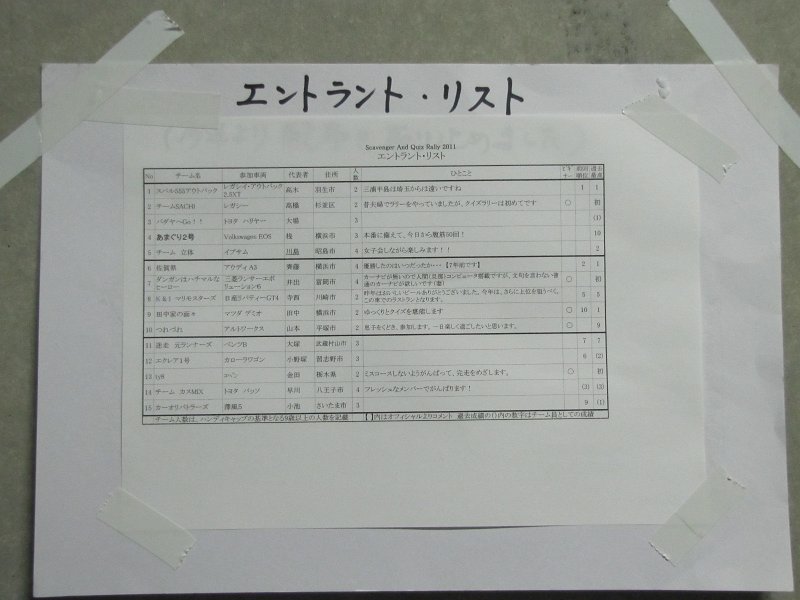 エントラント・リスト
Scavenger And Quiz Rally 2011
エントラント・リスト
No チーム名 参加車両 代表者 住所 人数 ひとこと ビギナー 前回順位 過去最高
1 スバル555アウトバック レガシィ・アウトバック2.5XT 高木 羽生市 2 三浦半島は埼玉からは遠いですね 4 1
2 チームSACHI レガシー 高橋 杉並区 2 昔夫婦でラリーをやっていましたが、クイズラリーは初めてです ○ 初
3 パダヤ～Go！！ トヨタ ハリヤー 大場 3 (1)
4 あまぐり2号 Volkswagen EOS 桟 横浜市 3 本番に備えて、今日から腹筋50回！ 10
5 チーム 立体 イプサム 川島 昭島市 4 女子会しながら楽しみます！！ 2
6 佐賀県 アウディ A3 齊藤 横浜市 4 優勝したのはいつだったか・・・【7年前です】 2 1
7 ダンガンはハチマルなヒーロー 三菱ランサーエボリューション6 井出 富岡市 4 カーナビが無いので人間(旦那)コンピュータ搭載ですが、文句を言わない普通のカーナビが欲しいです(妻) ○ 初
8 K&I マリモスターズ 日産リバティーGT4 寺西 川崎市 2 昨年はおいしいビールありがとうございました。今年は、さらに上位を狙うべく、この車でのラストランとなります。 5 5
9 田中家の面々 マツダ デミオ 田中 横浜市 2 ゆっくりとクイズを堪能します ○ 10 1
10 つれづれ アルトワークス 山本 平塚市 2 息子をくどき、参加します。一日楽しく過ごしたいと思います。 ○ 9
11 迷走 元ランナーズ ベンツB 大塚 武蔵村山市 3 7 7
12 エクレア1号 カローラワゴン 小野塚 習志野市 3 6 (2)
13 ty8 コペン 金田 栃木県 2 ミスコースしないようがんばって、完走をめざします。 ○ 初
14 チーム カスMIX トヨタ パッソ 早川 八王子市 4 フレッシュなメンバーでがんばります！ (3) (3)
15 カーオリバトラーズ 薄風5 小池 さいたま市 3 9 (1)
チーム人数は、ハンディキャップの基準となる9歳以上の人数を記載 【 】内はオフィシャルよりコメント 過去成績の( )内の数字はチーム員としての成績